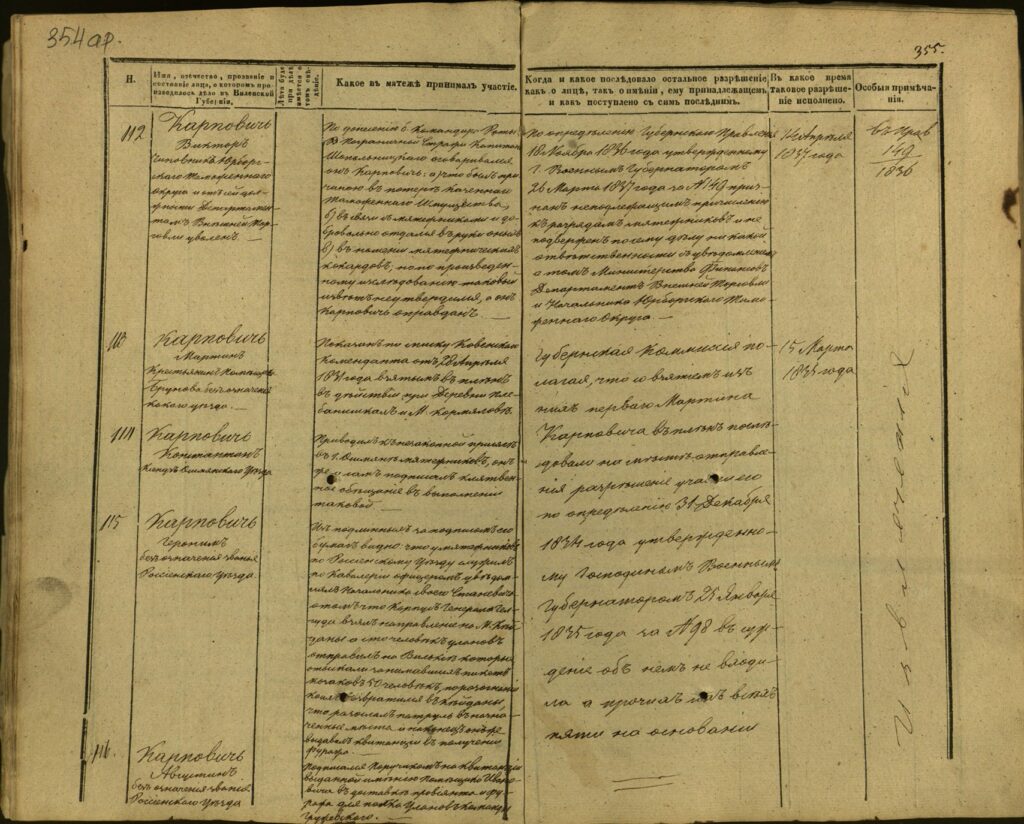 354 ар.
355.
Н.
Имя, отчество, прозвание и
состояние лица, о котором про-
изводилось дѣло въ Виленской
Губерніи.
Какое въ матежѣ принималъ участіе.
Когда и какое послѣдовало остальное разрѣшеніе,
какъ о лицѣ, такъ о имѣніи, ему принадлежащемъ
и какъ поступлено съ симъ послѣднимъ.
Въ какое время
таковое разрѣше-
ніе исполнено.
Особыя примѣча-
нія.
112
Карповичь
Викторъ
Чиновникъ Юрборг-
скаго Таможеннаго
округа и отъ сей дол-
жности Департамен-
томъ Внѣшней Тор-
говли уволенъ.
По донесенію б. Командира Роты
Пограничной Стражи Капитана
оговаривался
онъ Карповичь: а) что былъ при-
чиною въ потерѣ Казеннаго
Таможеннаго Имущества,
б) въ связи съ мятежниками и до-
бровольно отдался въ руки оныхъ
в) въ ношеніи мятежническихъ
кокардовъ, но по произведен-
ному изслѣдованію таковый
извѣтъ не утвердился, а онъ
Карповичь оправданъ.
По опредѣленію Губернскаго Правленія
18 Ноября 1836 года утвержденному
Г. Военнымъ Губернаторомъ
26 Марта 1837 года за № 149 приз-
нанъ неподлежащимъ причисленію
къ разрядамъ мятежниковъ и не
подверженъ по сему дѣлу ни какой
отвѣтственности съ увѣдомленіемъ
о томъ Министерства Финансовъ
Департаментъ Внѣшней Торговли
и Начальника Юрборгскаго Тамо-
женнаго Округа.
14 Апрѣля
1837 года
въ Прав
149
1836
113
Карповичь
Мартинъ
Крестьянинъ Помѣщика
безъ означенія
какого уѣзда.
Показанъ по списку Ковенскаго
Коменданта отъ 28 Апрѣля
1831 года взятымъ въ плѣнъ
въ дѣйствіи при Деревни Пле-
банишкахъ и М. Кормяловѣ
Губернская Коммисія по-
лагая, что о взятемъ изъ
нихъ перваго Мартина
Карповича въ плѣнъ послѣ-
довало на мѣстѣ отправле-
нія разрѣшеніе участи его
по опредѣленію 31 Декабря
1834 года утвержденно-
му Господиномъ Военнымъ
Губернаторомъ 25 Января
1835 года за № 98 въ суж-
деніе объ немъ не входи-
ла а прочихъ всѣхъ
пяти на основаніи
15 Марта
1835 года
114
Карповичь
Константинъ
Ксендзъ Ошмянскаго Уѣзда
Приводилъ къ незаконной присягѣ
въ г. Ошмянѣ мятежниковъ, онъ
же и самъ подписалъ клятвен-
ное обѣщаніе въ выполненіи
таковой
115
Карповичь
Геронимъ
безъ означенія званія
Россіенскаго Уѣзда.
Изъ подлинныхъ за подписомъ его
бумагъ видно: что у мятежниковъ
по Россіенскому Уѣзду служилъ
по Кавалеріи офицеромъ увѣдом-
лялъ Начальника своего Станевича
о томъ что Корпусъ Генерала Гел-
гуда взялъ направленіе на М. Кей-
даны а сто человѣкъ улановъ
отправилъ на Вильки которые
отыскали занимавшихъ пикетъ
козаковъ 50 человѣкъ,
возвратился въ Кейданы,
что разослалъ патруль въ назна-
ченныя мѣста и наконецъ онъ же
выдавалъ квитанціи въ полученіи
фуража.
116.
Карповичь
Августинъ
безъ означенія званія
Россіенскаго Уѣзда
Подписался Порутчикомъ на квитанціи
выданной имѣнію Помѣщика Ивано-
вича въ доставкѣ провіянта и фу-
ража для полка Улановъ команды